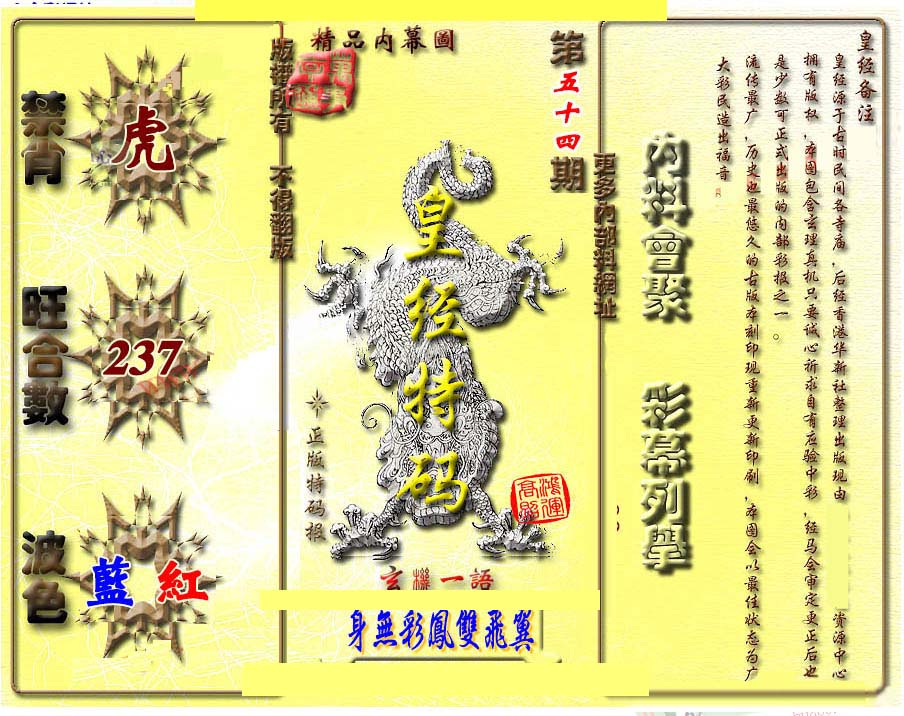 精品內幕圖
版權所有 不得翻版
禁肖
虎
旺合數
237
波色
藍 紅
第五十四期
更多內部料網址
皇经特码
正版特码报
鴻運高照
玄機一語
身無彩鳳雙飛翼
內料會聚
彩幕列舉
皇经备注
皇经源于古时民间各寺庙，后经香港华新社整理出版现由 资源中心
拥有版权，本图包含玄理真机只要诚心祈求自有应验中彩，经马会审定更正后也
是少数可正式出版的内部彩报之一。
流传最广，历史也最悠久的古版本刻印现重新更新印刷，本图会以最佳状态为广
大彩民造出福音